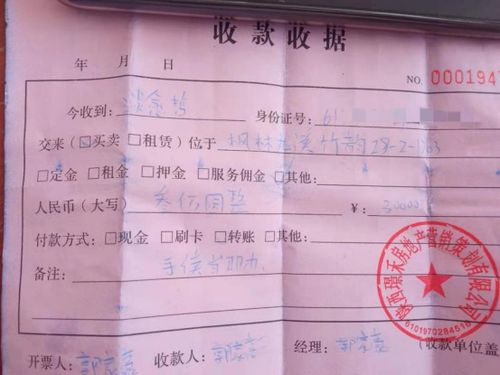 收款收据
年 月 日
NO. 000194
今收到: 身份证号: 61
交来(☑买卖 □租赁)位于: 枫林 溪竹韵28-2-1
□定金 □租金 □押金 □服务佣金 □其他:
人民币(大写) 圆整 ¥: 30000
付款方式: □现金 □刷卡 □转账 □其他:
备注:
陕西璟禾房地产营销策划有限公司
6101970284518
收款单位盖
开票人: 郭 收款人: 郭 经理: 郭